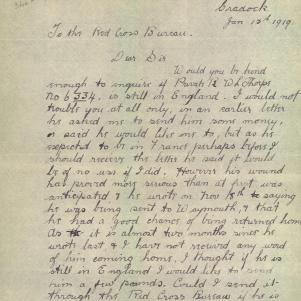 Cradock
Jan 12th 1919.
To the Red Cross Bureau.
Dear Sir
Would you be kind
enough to inquire if Private W. Thorpe
No 6334, is still in England. I would not
trouble you at all only, in an earlier letter
he asked me to send him some money,
or said he would like me to, but as he
expected to be in France perhaps before I
should receive the letter he said it would
be of no use if I did. However his wound
has proved more serious than at first was
anticipated & he wrote on Nov 18th to saying
he was being sent to Weymouth, & that
he had a good chance of being returned home
As it is almost two months since he
wrote last & I have not received any word
of him coming home. I thought if he is
still in England I would like to send
him a few pounds. Could I send it
through the Red Cross Bureau if he is